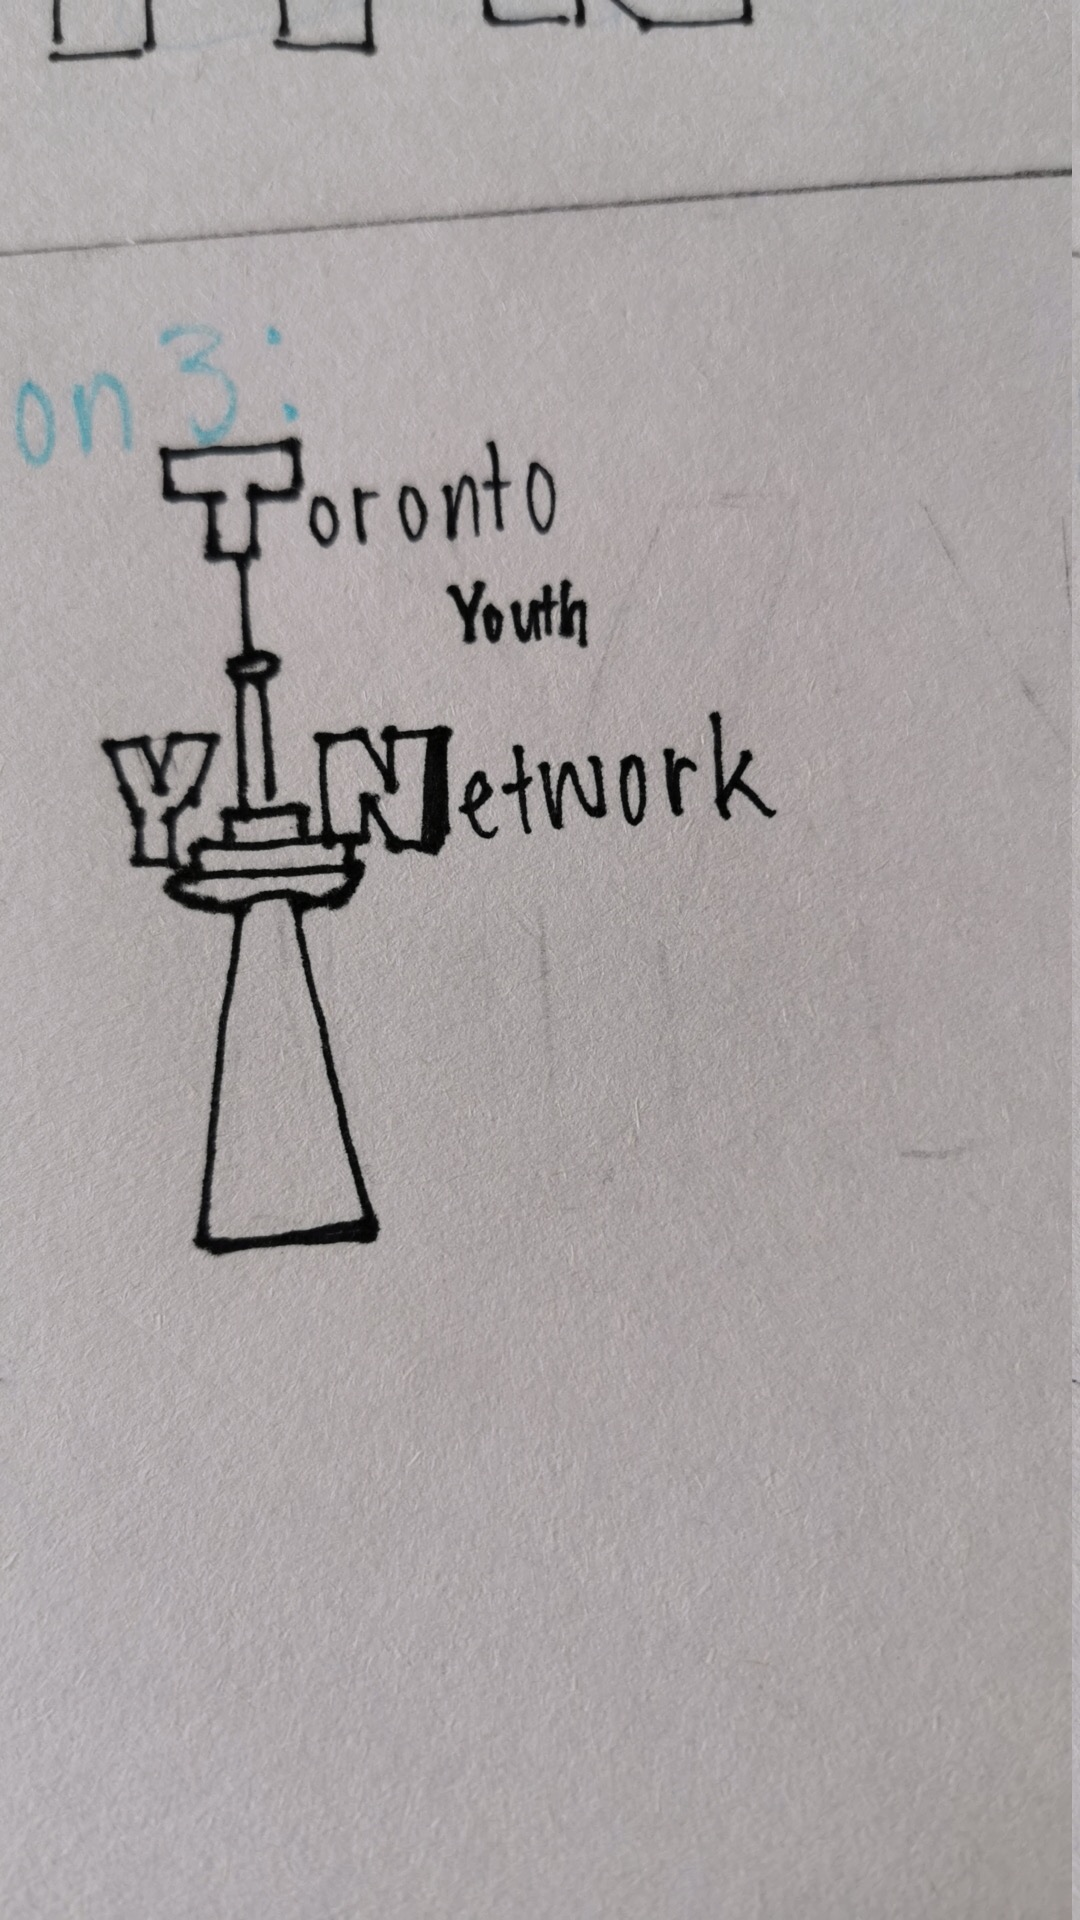 on 3:
Toronto
Youth
Y Network